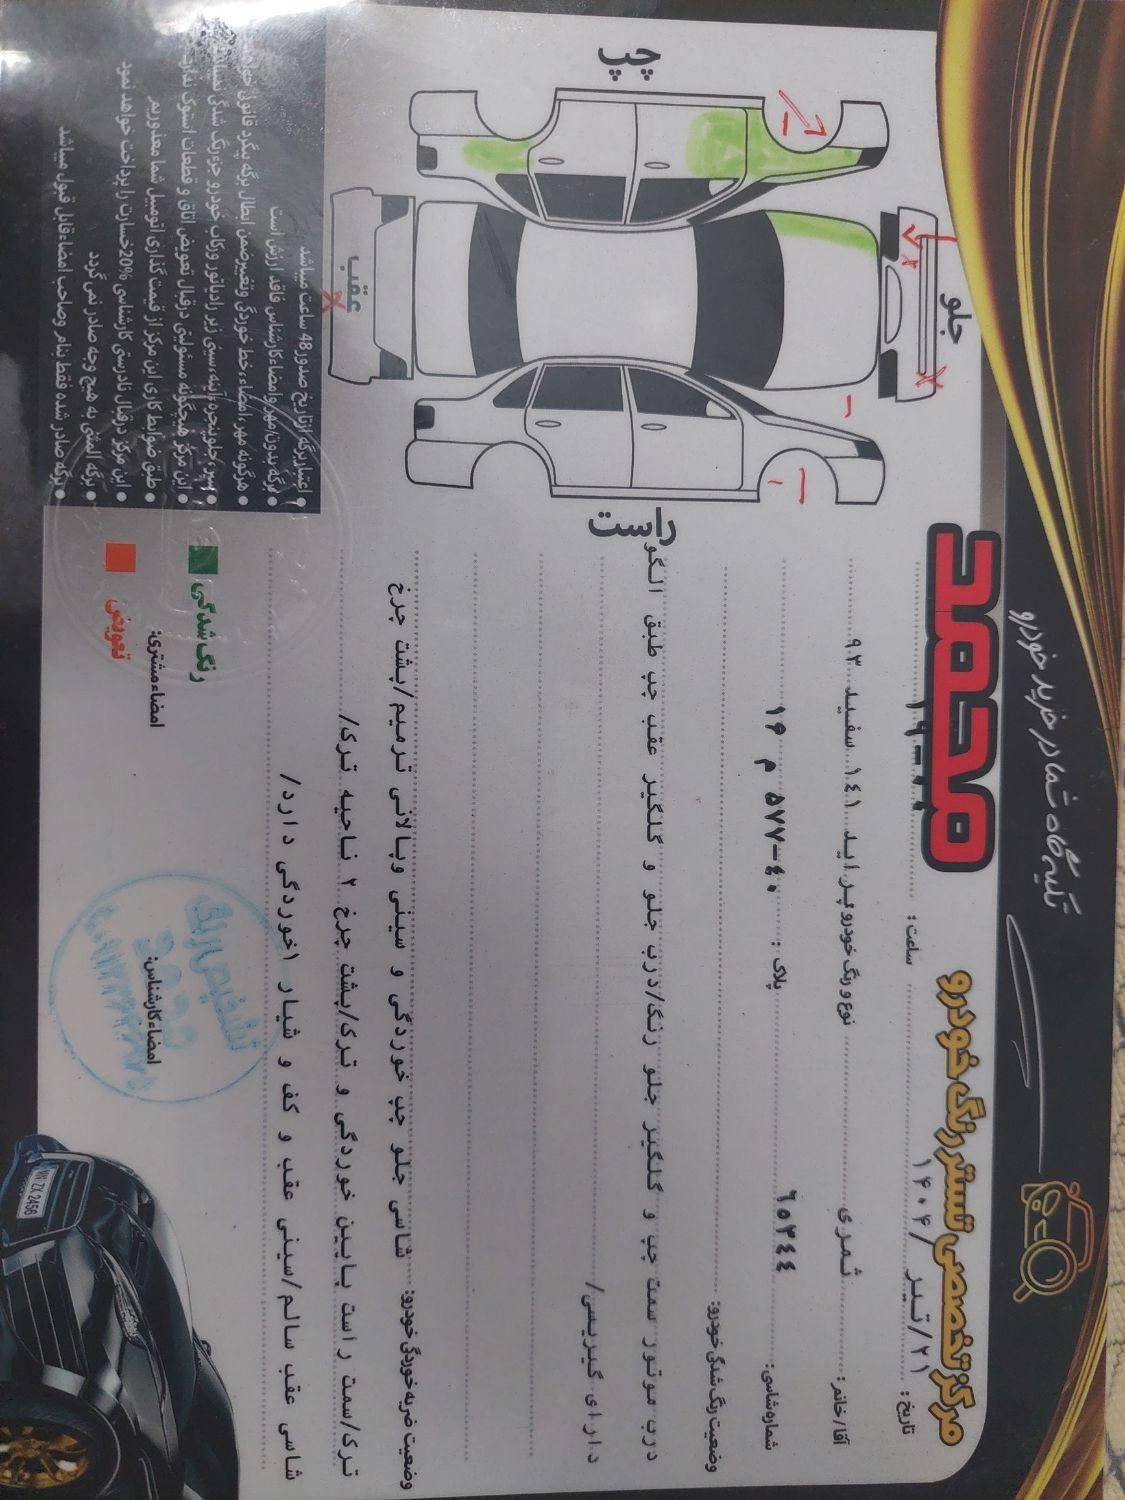 تکیه گاه شما در خرید خودرو
محمد
مرکز تخصصی تستر رنگ خودرو
تاریخ: ۲۱/تیر/۱۴۰۴ ساعت: ۱۹:۰۰
آقا/خانم: ثمری نوع و رنگ خودرو: پراید ۱۴۱ سفید ۹۳
شماره شاسی: ۶۵۳۴۴ پلاک: ۴۰-۵۷۷ م ۱۶
وضعیت رنگ شدگی خودرو:
درب موتور سمت چپ و گلگیر جلو رنگ/درب جلو و گلگیر عقب چپ طبق الگو
دارای گیریس/
وضعیت ضربه خوردگی خودرو: شاسی جلو چپ خوردگی و سینی وپالانی ترمیم/پشت چرخ
ترک/سمت راست پایین خوردگی و ترک/پشت چرخ ۲ ناحیه ترک/
شاسی عقب سالم/سینی عقب و کف و شیار ۱خوردگی دارد/
چپ
جلو
عقب
راست
رنگ شدگی
تعویض
امضاء مشتری:
امضاء کارشناس:
تشخیص رنگ
اعتبار برگه از تاریخ صدور 48 ساعت میباشد
برگه بدون مهر و امضاء کارشناس فاقد ارزش است
هرگونه مهر، امضاء، خط خوردگی و تغییر ضمن ابطال برگه پیگرد قانونی
سپر، جلوپنجره، آینه، سینی زیر رادیاتور و رکاب خودرو جزء رنگ شدگی
این مرکز هیچگونه مسئولیتی در قبال تعویض اتاق و قطعات استوک ندارد
طبق ضوابط کاری این مرکز از قیمت گذاری اتومبیل شما معذوریم
این مرکز در قبال نادرستی کارشناسی 20% خسارت را پرداخت خواهد نمود
برگه المثنی به هیچ وجه صادر نمی گردد
برگه صادر شده فقط بنام وصاحب امضاء قابل قبول میباشد